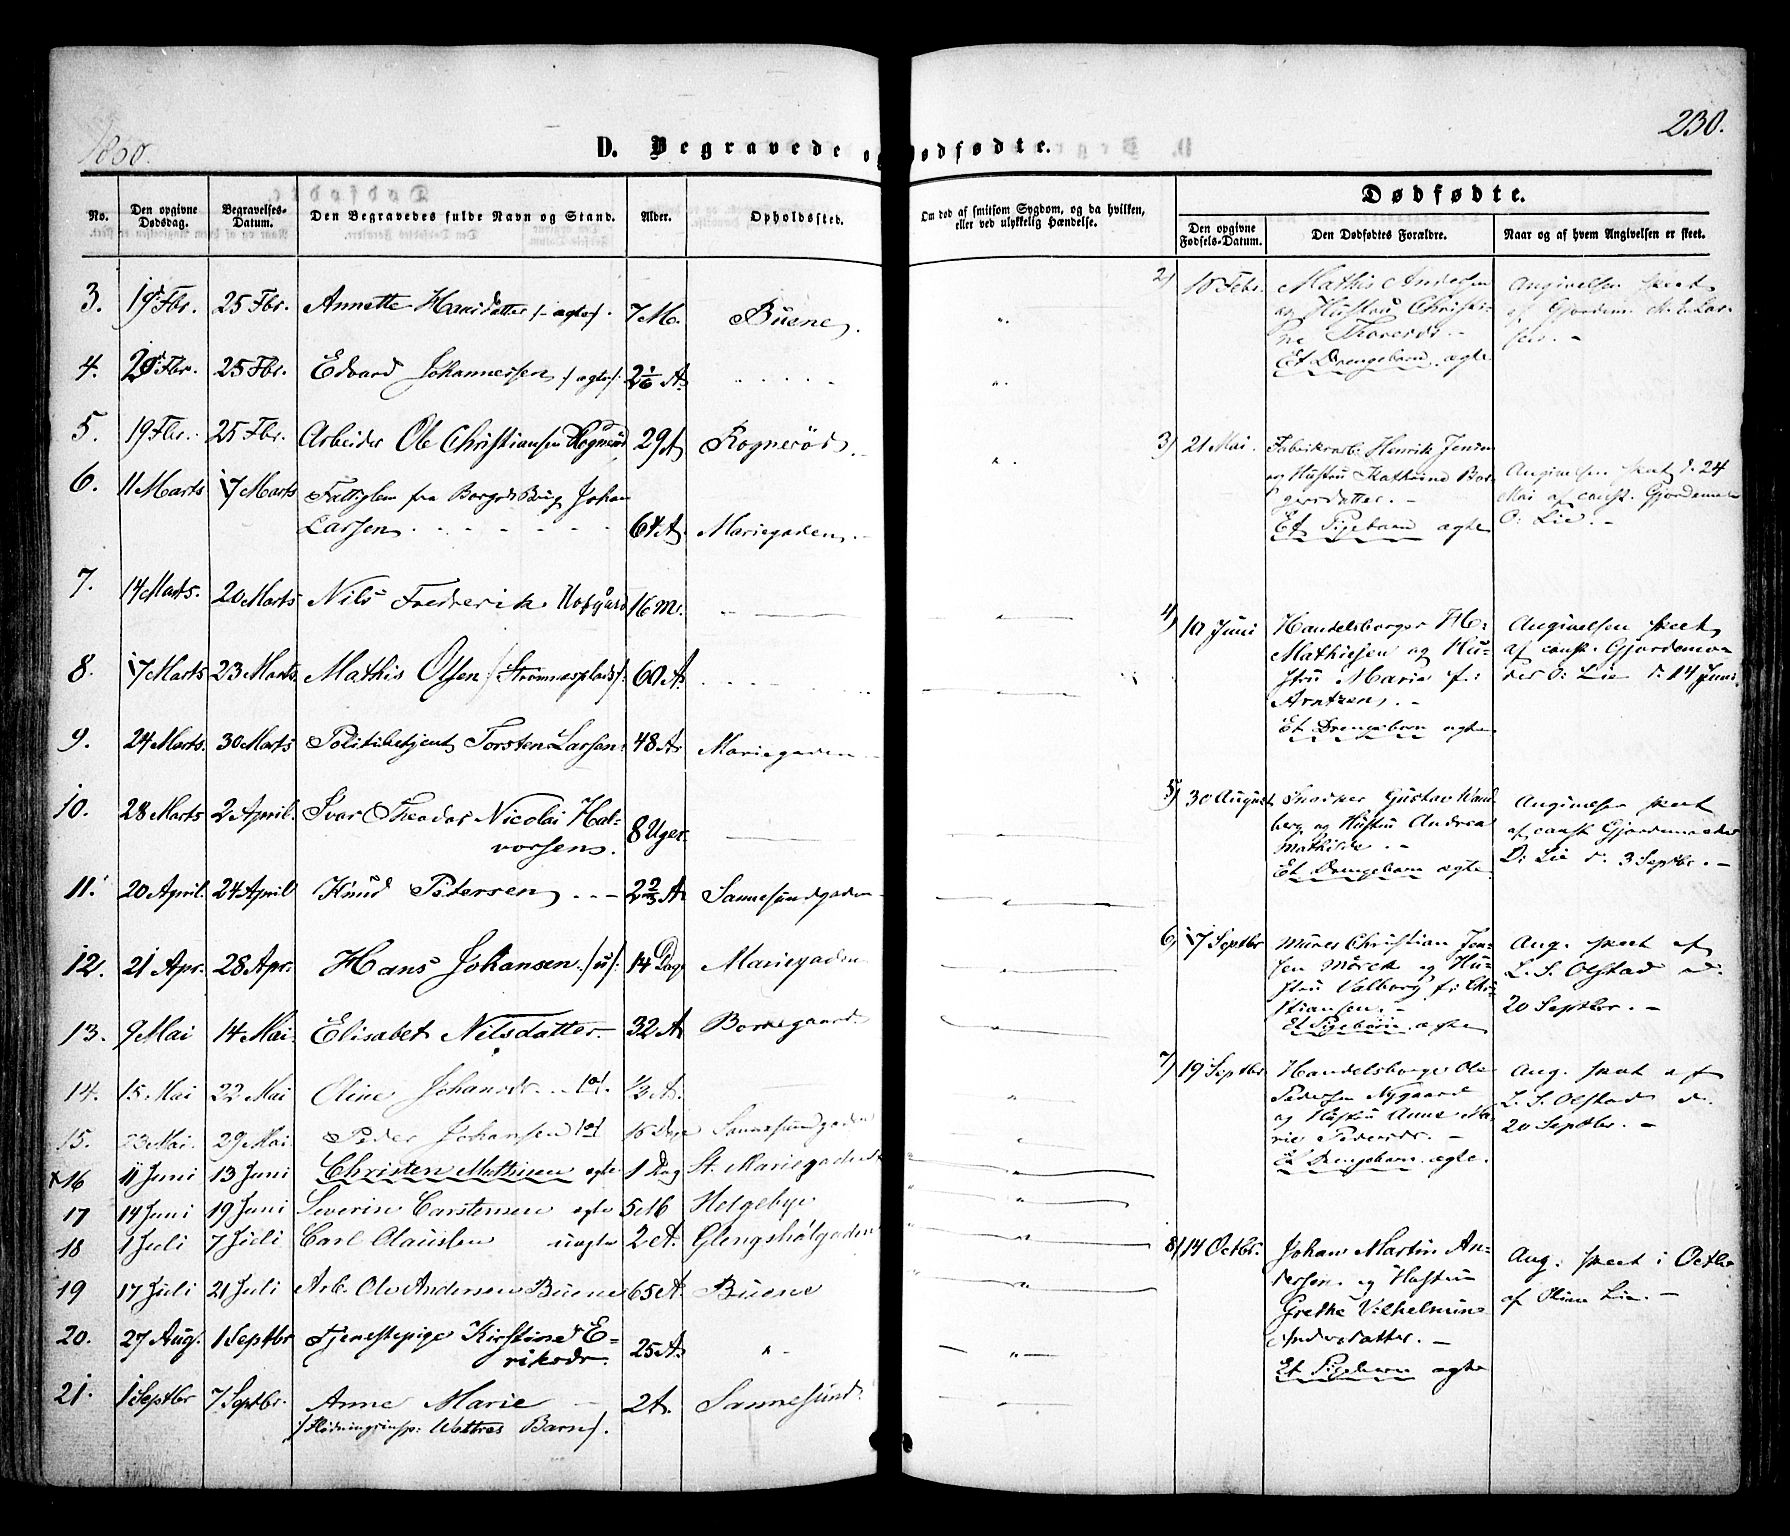 1860.
230.
D. Begravede og Dødfødte.
No.
Den opgivne Dødsdag.
Begravelses-Datum.
Den Begravedes fulde Navn og Stand.
Alder.
Opholdssted.
Om død af smitsom Sygdom, og da hvilken, eller ved ulykkelig Hændelse.
Dødfødte.
Den opgivne Fødsels-Datum.
Den Dødfødtes Forældre.
Naar og af hvem Angivelsen er skeet.
3. 19 Fbr. 25 Fbr. Annette Hansdatter /: ægte :/. 7 M. Buene.
4. Fbr. 25 Fbr. Edvard Johannessen /: ægte :/ 2 1/6 A.
5. 19 Fbr. 25 Fbr. Arbeider Ole Christiansen Rognerød 29 A Rognerød
6. 11 Marts 17 Marts Fattiglem fra Borge Johan
Larsen 64 A. Mariegaden.
7. 14 Marts. 20 Marts Nils Frederik Hofgård 16 M.
8. 17 Marts 23 Marts Mathis Olsen /: Strømnesplads :/ 60 A.
9. 24 Marts. 30 Marts Politibetjent Torsten Larsen 48 A. Mariegaden
10. 28 Marts 2 April. Ivar Theodor Nicolai Hal-
vorsen. 8 Uger.
11. 20 April. 24 April Knud Petersen 2 2/3 A. Sannesundgaden
12. 21 Apr. 28 Apr. Hans Johansen /: u :/ 14 Dag Mariegaden
13. 9 Mai 14 Mai Elisabet Nilsdatter. 32 A Borregaard
14. 15 Mai 22 Mai Oline Johansdr. 1/3 A.
15. 23 Mai. 29 Mai. Peder Johansen 10 Dage Sannesundgaden
16 11 Juni 13 Juni Christen Mathisen ægte 1 Dag St. Mariegaden
17 14 Juni 19 Juni Severin Carstensen ægte 5 M Helgebye
18 1 Juli 7 Juli Carl Clausen uægte 2 A. Glengshølgaden
19 17 Juli 21 Juli Arb. Ole Andersen Buene 65 A. Buene
20. 27 Aug. 1 Septbr Tjenestepige Kirstine E-
riksdr. 25 A. "
21. 1 Septbr 7 Septbr. Anne Marie 2 A. Sannesund
/: Flødningsinsp: Wettres Barn :/.
2) 10 Febr. Mathis Andersen
og Hustru Christi-
ne Thoresdr. -
Et Drengebarn. ægte
Angivelsen skeet
af Gjordem. M. E. Lar-
sen. -
3) 21 Mai. Fabrikarb: Henrik Jensen
og Hustru Kathrine Bor-
gersdatter. -
Et Pigebarn ægte
Angivelsen skeet d. 24
Mai af const. Gjordemoder
O: Lie. -
4) 10 Juni Handelsborger H:
Mathiesen og Hu-
stru Maria f:
Arntzen. -
Et Drengebarn ægte
Angivelsen skeet
af const. Gjordemo-
der O: Lie d: 14 Juni
5) 30 August Snedker Gustav Wand-
berg og Hustru Andrea
Mathilde. -
Et Drengebarn ægte
Angivelsen skeet
af const Gjordemoder
O: Lie d. 3 Septbr. -
6) 17 Septbr Murer Christian Jen-
sen Mørck og Hu-
stru Valborg f: Chri-
stiansen. -
Et Pigebarn. ægte
Ang. skeet af
L. S. Olstad d.
20 Septbr. -
7) 19 Septbr Handelsborger Ole
Pedersen Nygaard
og Hustru Anne Ma-
rie Pedersdr. -
Et Drengebarn. ægte.
Ang. skeet af
L. S. Olstad d.
20 Septbr. -
8) 14 Octbr. Johan Martin An-
dersen og Hustru
Grethe Vilhelmine
Andersdatter. -
Et Pigebarn ægte
Ang. skeet i Octbr
af Oline Lie. -